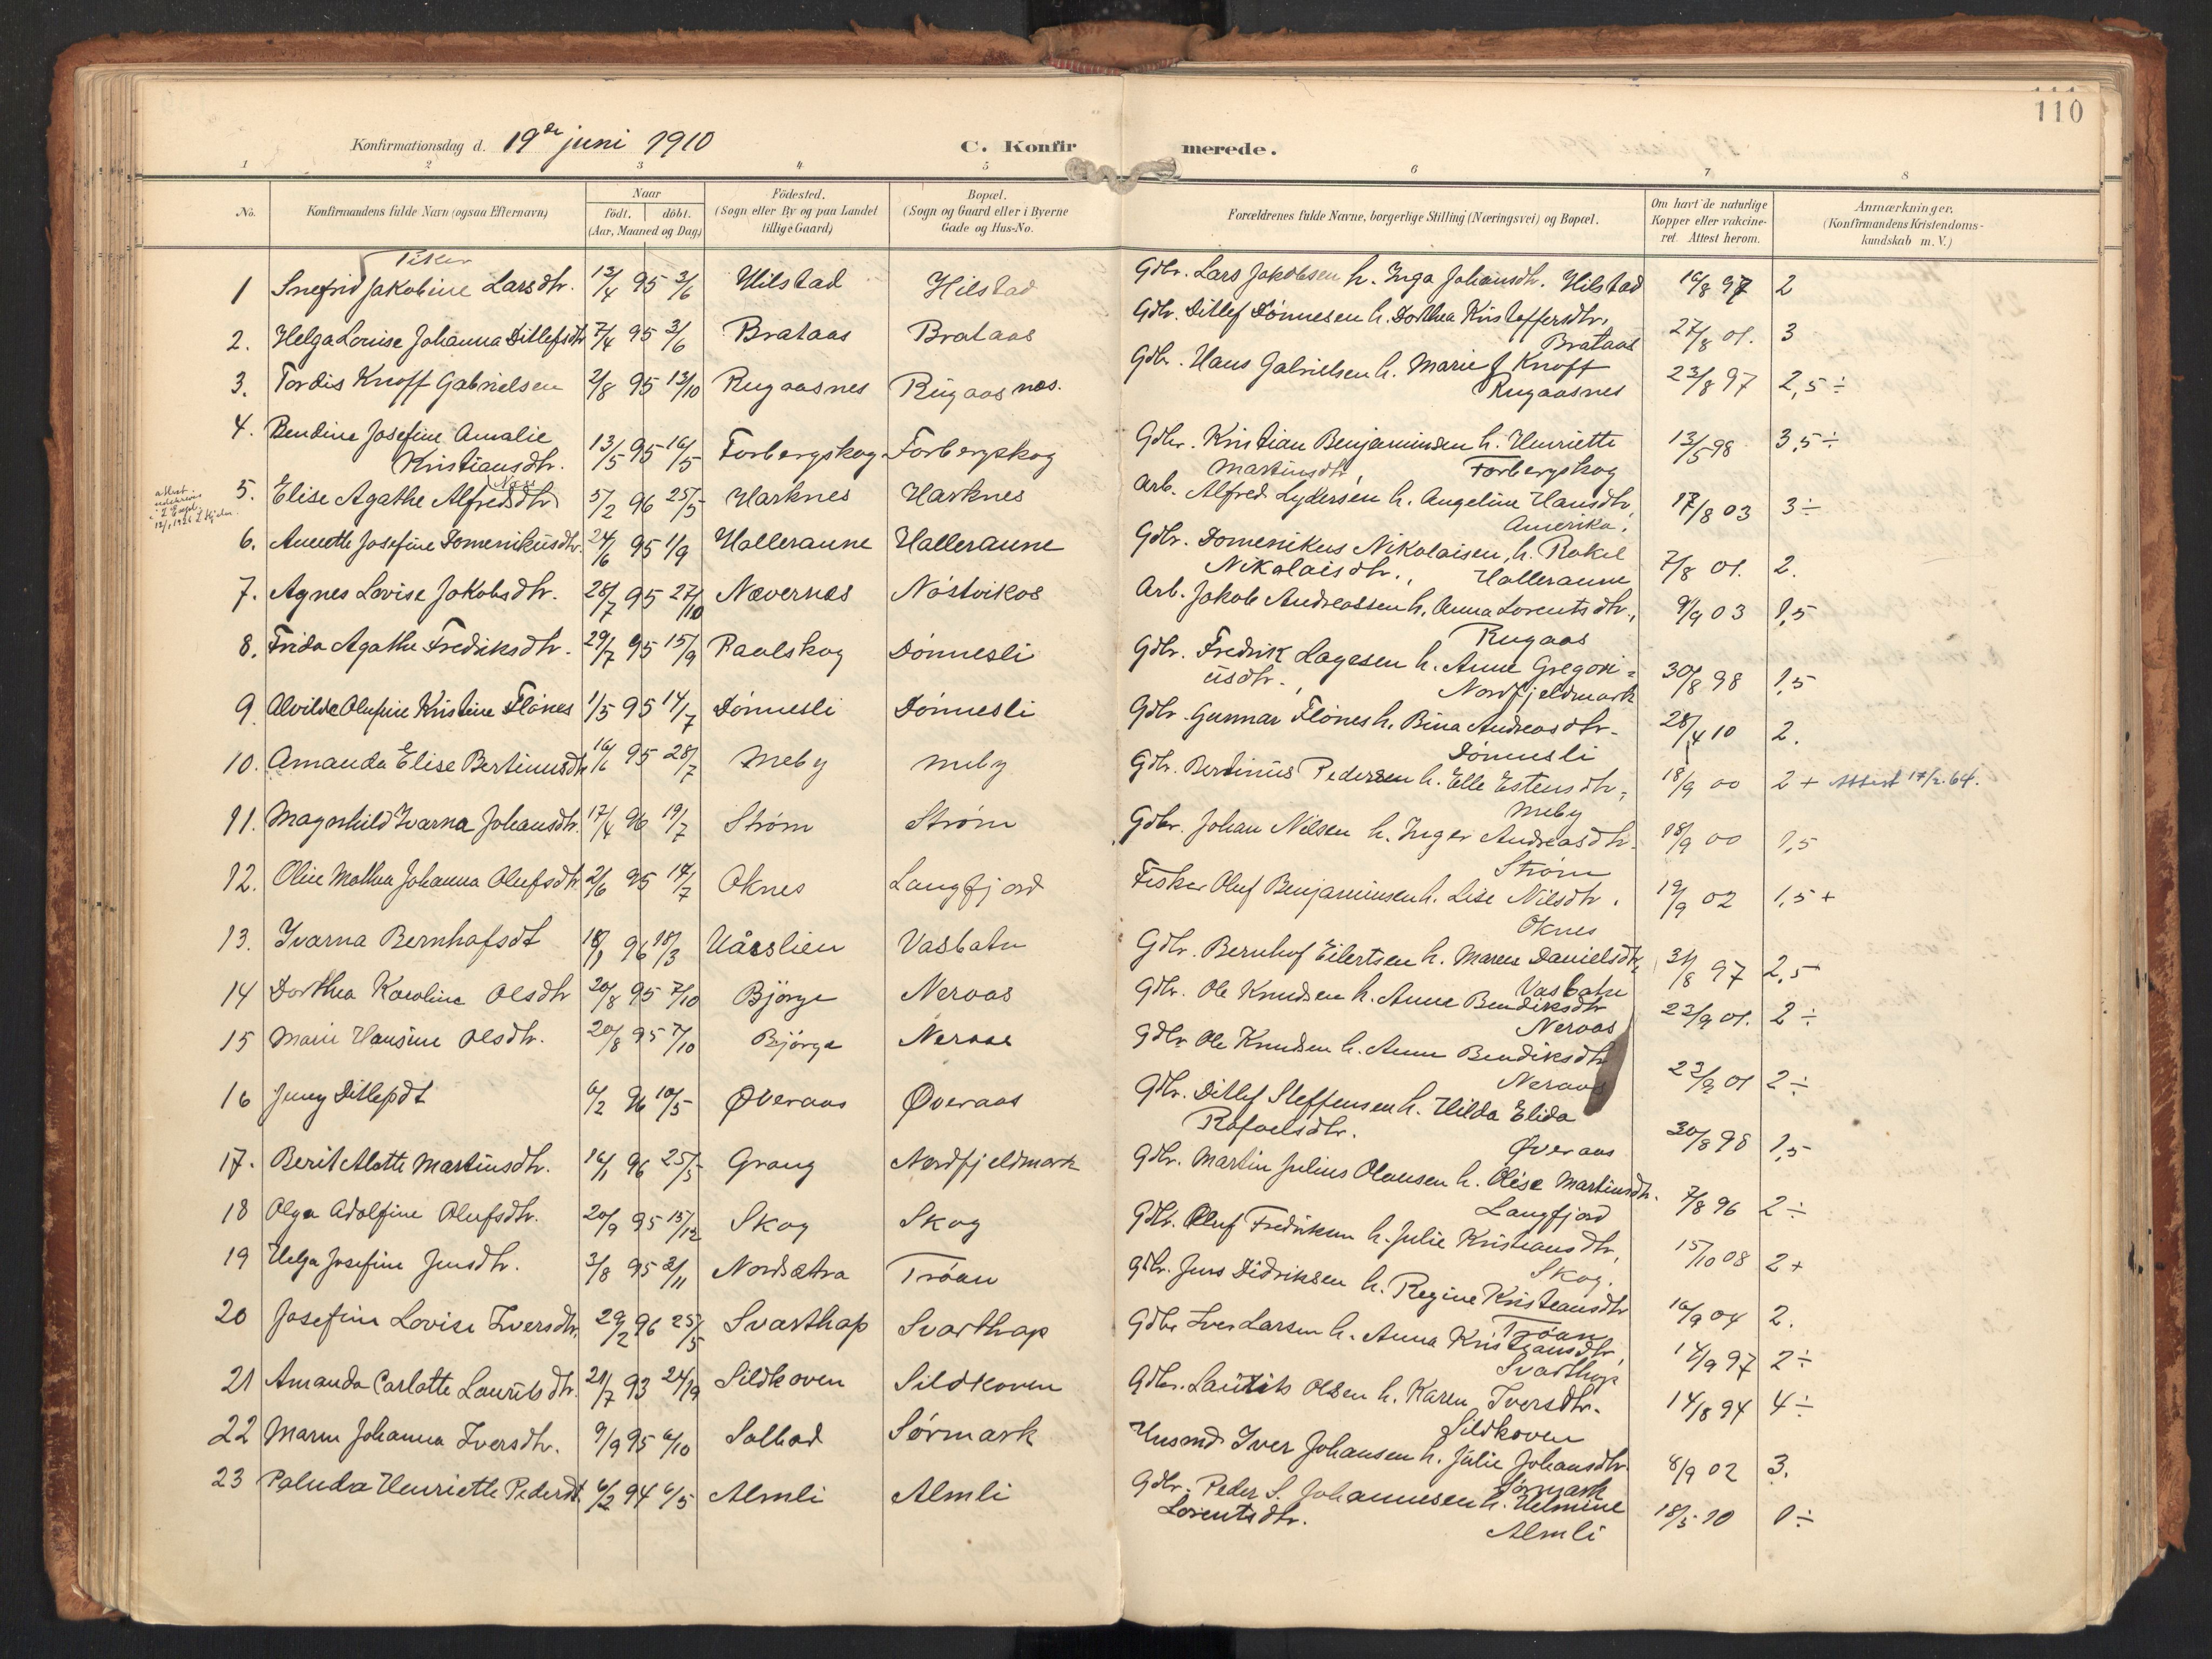 110
Konfirmationsdag d. 19de juni 1910 C. Konfir merede.
1 2 3 4 5 6 7 8
No. Konfirmandens fulde Navn (ogsaa Efternavn) Naar født. døbt. (Aar, Maaned og Dag) Födested. (Sogn eller By og paa Landet tillige Gaard) Bopæl. (Sogn og Gaard eller i Byerne Gade og Hus-No. Forældrenes fulde Navne, borgerlige Stilling (Næringsvei) og Bopæl. Om havt de naturlige Kopper eller vakcineret. Attest herom. Anmærkninger. (Konfirmandens Kristendomskundskab m. V.)
1 Snefrid Jakobine Larsdtr. 13/4 95 3/6 Hilstad Hilstad Gdbr. Lars Jakobsen h. Inga Johansdtr. Hilstad 16/8 97 2
2. Helga Lovise Johanna Ditlefsdtr 7/4 95 3/6 Brataas Brataas Gdbr. Ditlef Dønnesen h. Dorthea Kristoffersdtr, Brataas 27/8 01. 3
3. Tordis Knoff Gabrielsen 2/8 95 13/10 Rugaasnes Rugaasnes. Gdbr. Hans Gabrielsen h. Marie J Knoff Rugaasnes 23/8 97 2,5 ÷
4. Bendine Josefine Amalie Kristiansdtr. 13/5 95 16/5 Forbergskog Forbergskog Gdbr. Kristian Benjaminsen h. Henriette Martinsdtr, Forbergskog 13/5 98 3,5 ÷
5. Elise Agathe Alfredsdtr 5/2 96 25/5 Harknes Harknes Arb. Alfred Lydersen h. Angeline Hansdtr, Amerika. 17/8 03 3 ÷
6. Annette Josefine Domenikusdtr. 24/6 95 1/9 Halleraune Halleraune Gdbr. Domenikus Nikolaisen, h. Rakel Nikolaisdtr., Halleraune 7/8 01. 2.
7. Agnes Lovise Jakobsdtr. 28/7 95 27/10 Nævernes Nøstvikos Arb. Jakob Andreassen h. Anna Lorentsdtr., Rugaas 9/9 03 1,5
8. Frida Agathe Fredriksdtr. 29/7 95 15/9 Paalskog Dønnesli Gdbr. Fredrik Lagesen h. Anne Gregoriusdtr., Nordfjeldmark 30/8 98 1,5
9. Alvilde Olufine Kristine Flønes 1/5 95 14/7 Dønnesli Dønnesli Gdbr. Gunnar Flønes h. Bina Andreasdtr. Dønnesli 28/4 10 2.
10. Amanda Elise Bertinusdtr 16/6 95 28/7 Meby Meby Gdbr. Bertinus Pedersen h. Elle Estensdtr, Meby 18/9 00 2 + Attest 17/2.64.
11. Magnhild Ivarna Johansdtr. 17/4 96 19/7 Strøm Strøm Gdbr. Johan Nilsen h. Inger Andreasdtr. Strøm 18/9 00 1,5
12. Oline Mathea Johanna Olufsdtr. 2/6 95 14/7 Oknes Langfjord Fisker Oluf Benjaminsen h. Lise Nilsdtr. Oknes 19/9 02 1,5 +
13. Ivarna Bernhofsdt 18/1 96 18/3 Uårslien Vasbatn Gdbr. Bernhof Eilertsen h. Maren Danielsdtr, Vasbatn 31/8 97 2,5
14 Dorthea Karoline Olsdtr 20/8 95 7/10 Bjørge Neraas Gdbr. Ole Knudsen h. Anne Bendiksdtr Neraas 23/9 01. 2 ÷
15 Marie Hansine Olsdtr. 20/8 95 7/10 Bjørge Neraas Gdbr Ole Knudsen h. Anne Bendiksdtr Neraas 23/9 01 2 ÷
16 Jenny Ditlefsdt 6/2 96 10/5 Øveraas Øveraas Gdbr. Ditlef Steffensen h. Hilda Elida Rafaelsdtr. Øveraas 30/8 98 1,5
17. Berit Alette Martinsdtr. 14/1 96 25/5 Grang Nordfjeldmark Gdbr. Martin Julius Olausen h. Elise Martinsdtr. Langfjord 7/8 96 2 ÷
18 Olga Adolfine Olufsdtr. 20/9 95 15/12 Skog Skog Gdbr. Oluf Fredriksen h. Julie Kristiansdtr, Skog. 15/10 08 2 +
19 Helga Josefine Jensdtr. 3/8 95 2/11 Nordsætra Trøan Gdbr. Jens Didriksen h. Regine Kristiansdtr Trøan 16/9 04 2.
20 Josefine Lovise Iversdtr. 29/2 96 25/5 Svarthap Svarthap Gdbr Iver Larsen h. Anna Kristiansdtr, Svarthap 14/9 97 2 ÷
21 Amanda Carlotte Lauritsdtr. 21/7 93 24/9 Sildkoven Sildkoven Gdbr. Laurits Olsen h. Karen Iversdtr. Sildkoven 14/8 94 4 ÷
22 Maren Johanna Iversdtr. 9/9 95 6/10 Solbad Sørmark Husmd Iver Johansen h. Julie Johansdtr. Sørmark 8/9 02 3.
23 Paluda Henriette Pedersdt. 6/2 94 6/5 Almli Almli Gdbr. Peder S. Johannesen h. Helmine Lorentsdtr. Almli 18/5 10 1 ÷